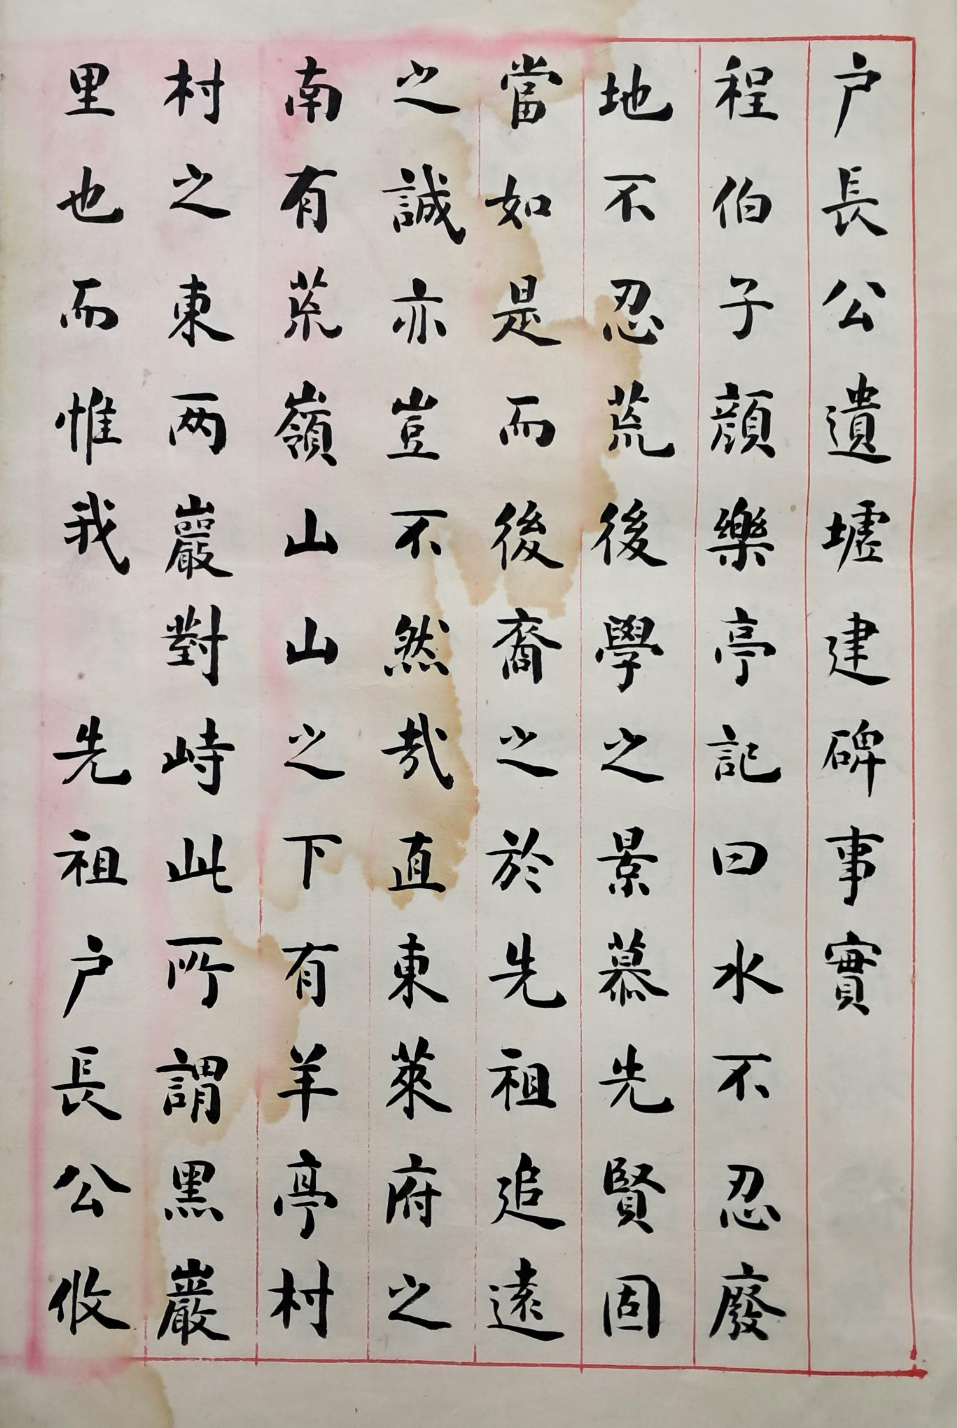 户長公遺墟建碑事實
程伯子顔樂亭記曰水不忍廢
地不忍荒後學之景慕先賢固
當如是而後裔之於先祖追遠
之誠亦豈不然哉直東萊府之
南有荒嶺山山之下有羊亭村
村之東两巖對峙此所謂黑巖
里也而惟我 先祖户長公攸